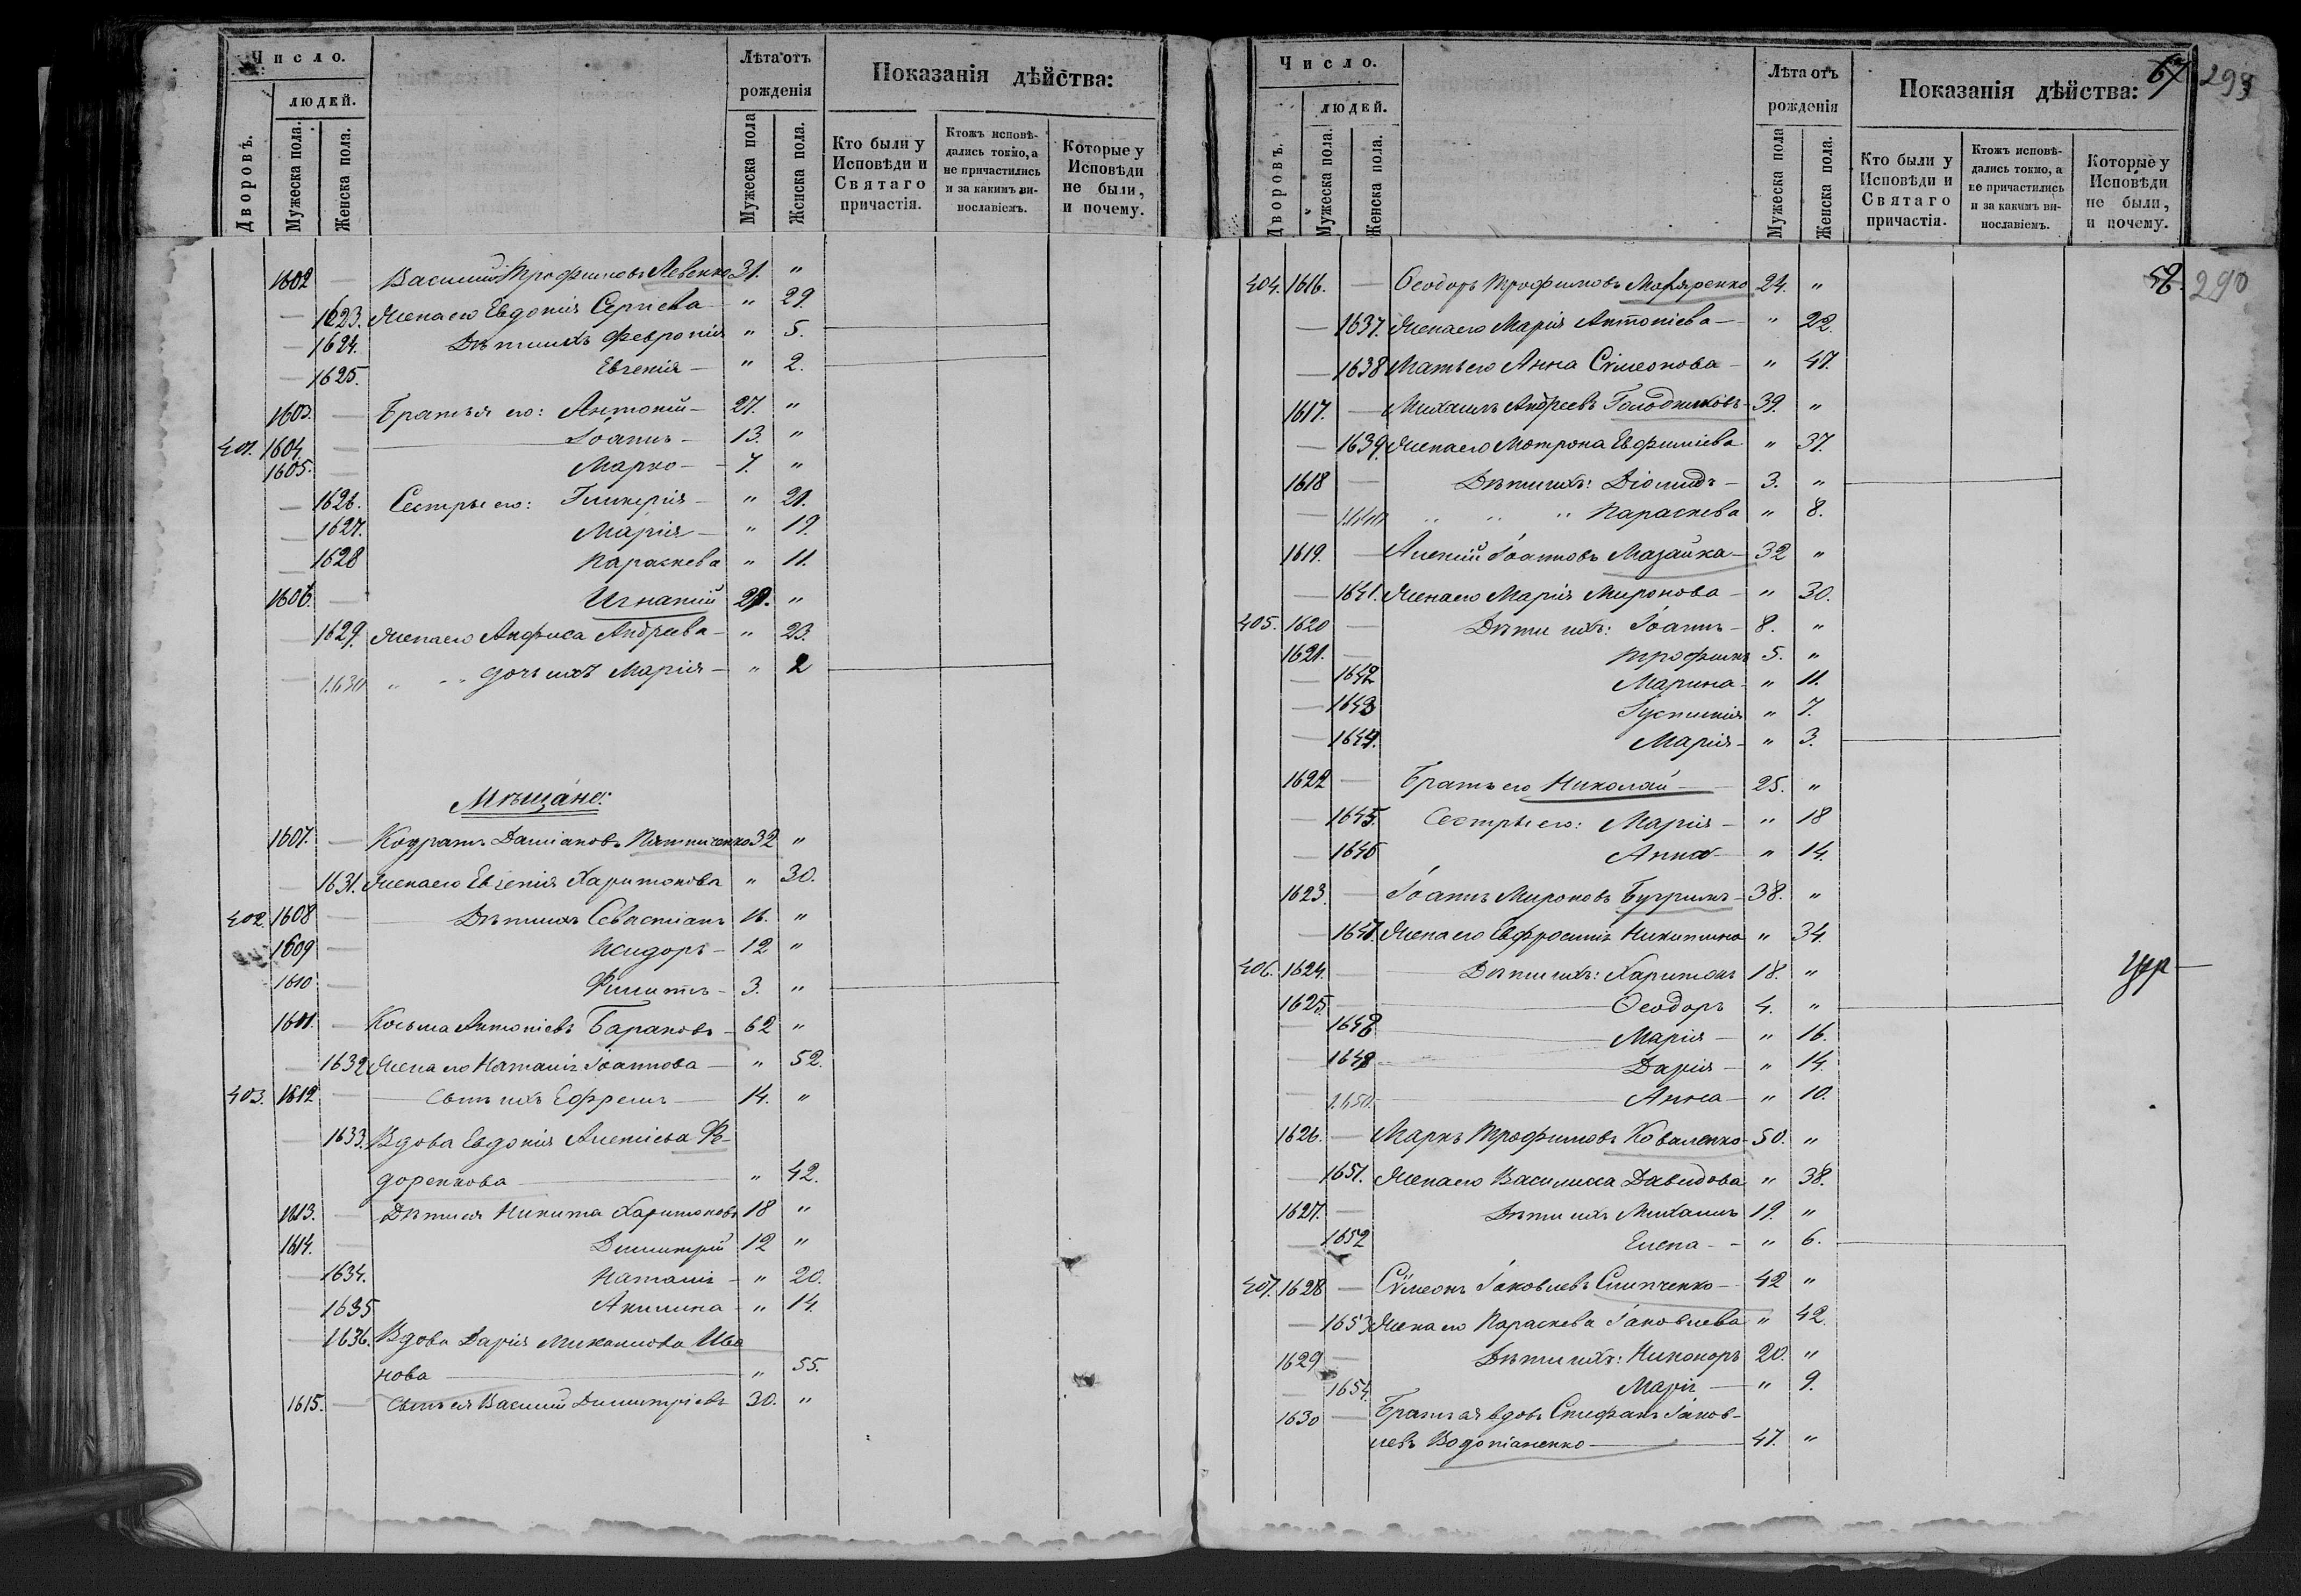 Число.
людей.
Дворовъ.
Мужеска пола.
Женска пола.
Лѣта отъ
рожденія
Мужеска пола
Женска пола.
Показанія дѣйства:
Кто были у
Исповѣди и
Святаго
причастія.
Ктожъ исповѣ-
дались токмо, а
не причастились
и за какимъ ви-
нославіемъ.
Которые у
Исповѣди
не были,
и почему.
1602 — Василій Трофимовъ Левенко 31. "
— 1623. Жена его Евдокія Сергіева — " 29.
— 1624. Дѣти ихъ Февронія " 5.
— 1625. Евгенія — " 2.
1603. — Братья его: Антоній — 27. "
401. 1604 — Іоаннъ — 13. "
1605. — Марко — 7. "
— 1626. Сестры его: Гликерія — " 21.
— 1627. Марія — " 19.
— 1628 Параскева " 11.
1606. — Игнатій "
— 1629. Жена его Анфиса Андреева — " 23.
— 1630 " " дочь ихъ Марія — " 2
Мѣщане:
1607. — Кодратъ Даміановъ 32 "
— 1631. Жена его Евгенія Харитонова " 30.
402. 1608 — Дѣти ихъ Севастіанъ 16. "
1609 — Исидоръ — 12 "
1610 — Филиппъ — 3. "
1611. — Косьма Антоніевъ Барановъ — 62 "
— 1632 Жена его Наталія Іоаннова — " 52.
403. 1612 — Сынъ ихъ Ефремъ — 14. "
— 1633. Вдова Евдокія Алексіева Ѳе-
доренкова — " 42.
1613. — Дѣти ея Никита Харитоновъ 18 "
1614. — Димитрій 12 "
— 1634. Наталія — " 20.
— 1635 Акилина — " 14.
— 1636. Вдова Дарія Михаилова Ива
нова — " 55.
1615. — Сынъ ея Василій Димитріевъ 30. "
Число.
людей.
Дворовъ.
Мужеска пола.
Женска пола.
Лѣта отъ
рожденія
Мужеска пола
Женска пола.
Показанія дѣйства:
67
Кто были у
Исповѣди и
Святаго
причастія.
Ктожъ исповѣ-
дались токмо, а
не причастились
и за какимъ ви-
нославіемъ.
Которые у
Исповѣди
не были,
и почему.
404. 1616. — Ѳеодоръ Трофимовъ 24. " 290
— 1637. Жена его Марія Антоніева — " 22.
— 1638 Мать его Анна Сѵмеонова — " 47.
1617. — Михаилъ Андреевъ Голодниковъ — 39. "
— 1639. Жена его Мотрона Евфиміева " 37.
1618 — Дѣти ихъ: Діомидъ — 3. "
— 1640 " " " Параскева " 8.
1619. — Алексій Іоанновъ Мазайка — 32 "
— 1641. Жена его Марія Миронова — " 30.
405. 1620 — Дѣти ихъ: Іоаннъ — 8. "
1621. — Трофимъ 5. "
— 1642 Марина — " 11.
— 1643 Іустинія " 7.
— 1644. Марія — " 3.
1622 — Братъ его Николай — 25. "
— 1645. Сестры его: Марія — " 18
— 1646 Анна — " 14.
1623. — Іоаннъ Мироновъ — 38. "
— 1647. Жена его Евфросинія Никитина " 34.
406. 1624. — Дѣти ихъ: Харитонъ 18. "
1625. — Ѳеодоръ 4. "
— 1648 Марія — " 16.
— Дарія — " 14.
— 1650. Анна — " 10.
1626. — Маркъ Трофимовъ Коваленко — 50. "
— 1651. Жена его Василиса Давидова " 38.
1627. — Дѣти ихъ Михаилъ 19. "
— 1652 Елена — " 6.
407. 1628 — Сѵмеонъ Іаковлевъ Слипченко — 42 "
— 1653 Жена его Параскева Іаковлева " 42.
1629 — Дѣти ихъ: Никоноръ 20. "
— 1654. Марія — " 9.
1630 — Іаков-
левъ Водопіаненко — 47. "